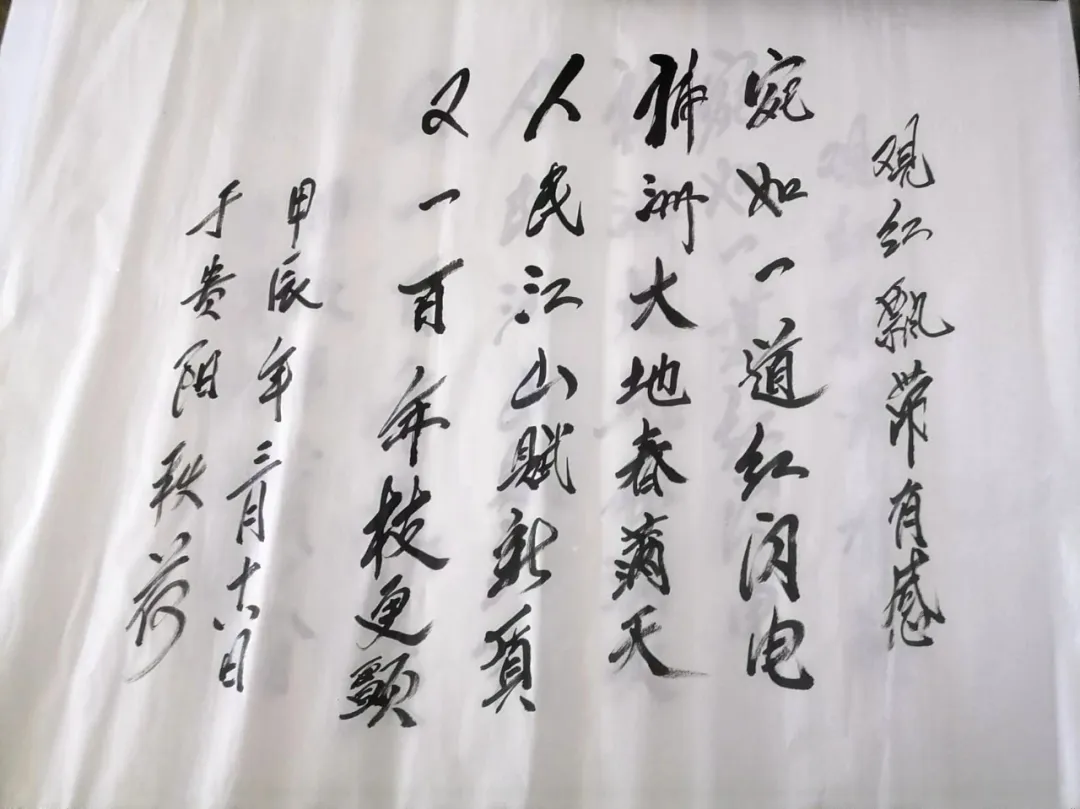 观红飘带有感
宛如一道红闪电
神洲大地春满天
人民江山赋新
又一百年枝更
甲辰年三月十六日
于贵阳秋荷